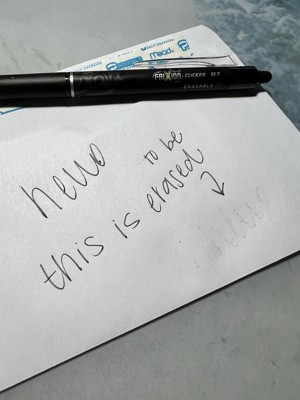 FRIXION CLICKER 07
ERASABLE
Mead
hello
to be
this is erased